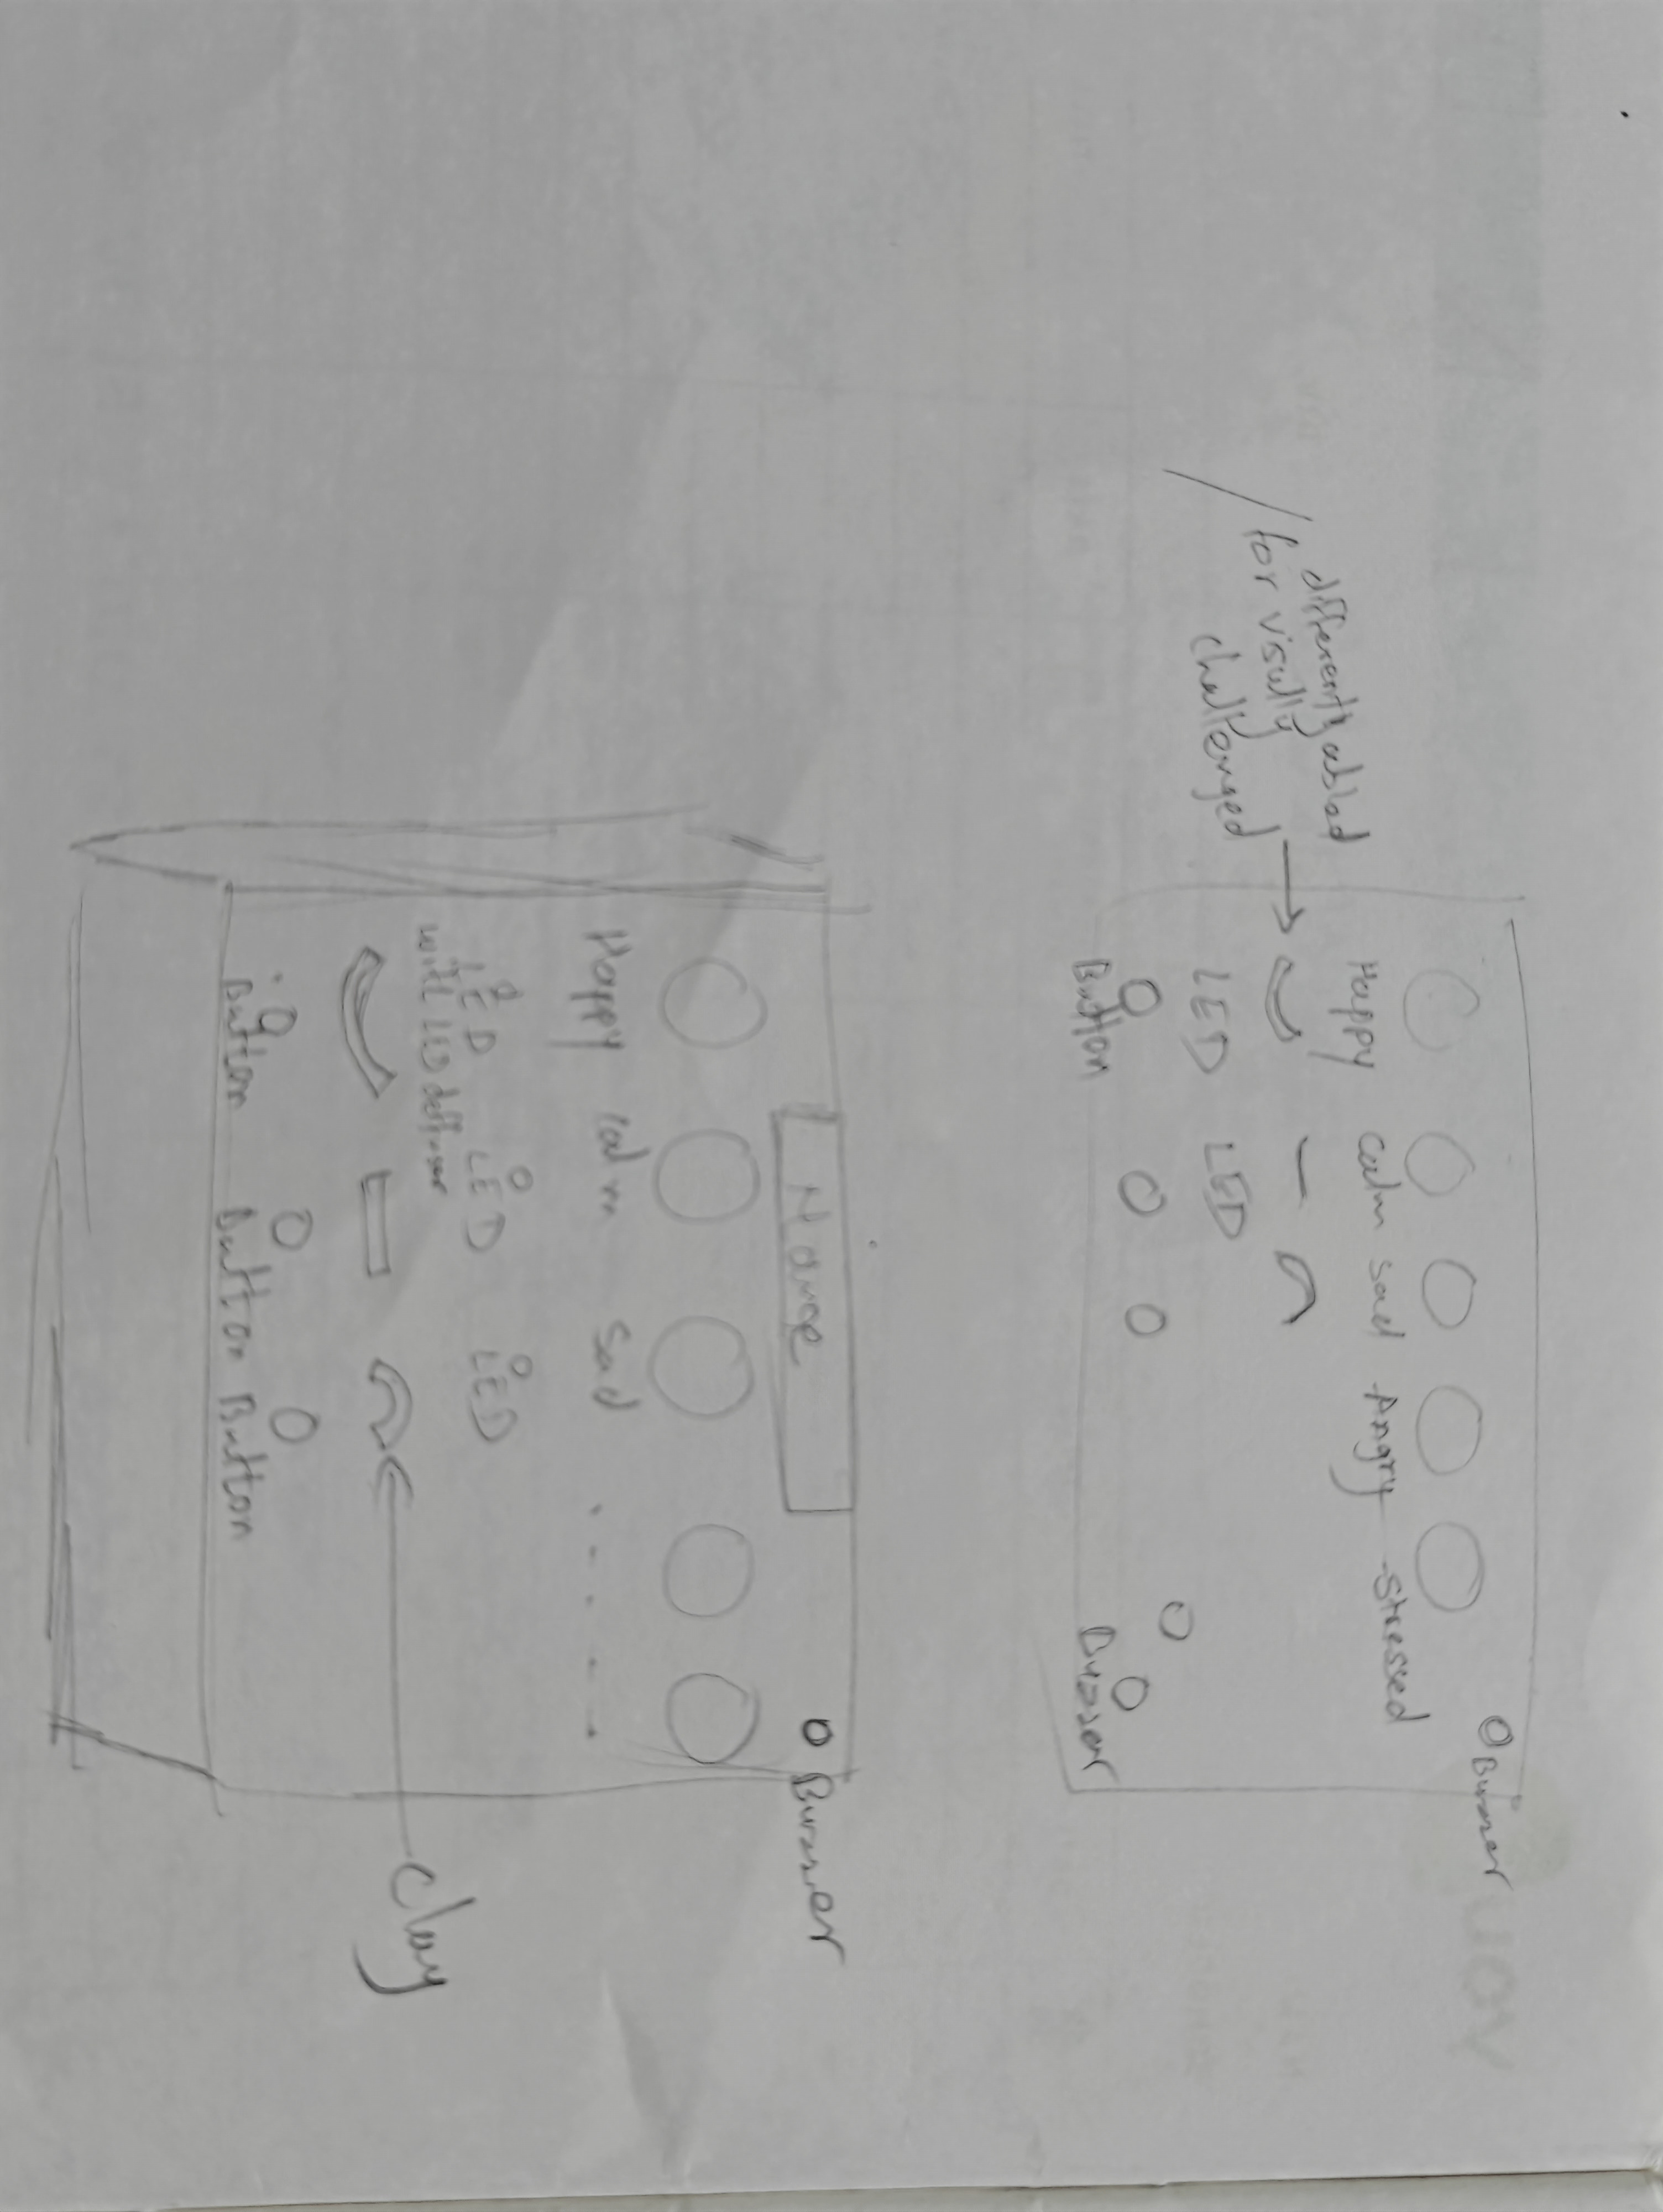 Buzzer
Happy calm sad Angry Stressed
differently abled
for visully
challenged
LED LED
Button
Buzzer
Name
Buzzer
Happy calm sad
LED LED LED
with LED deffuser
clay
Button Button Button